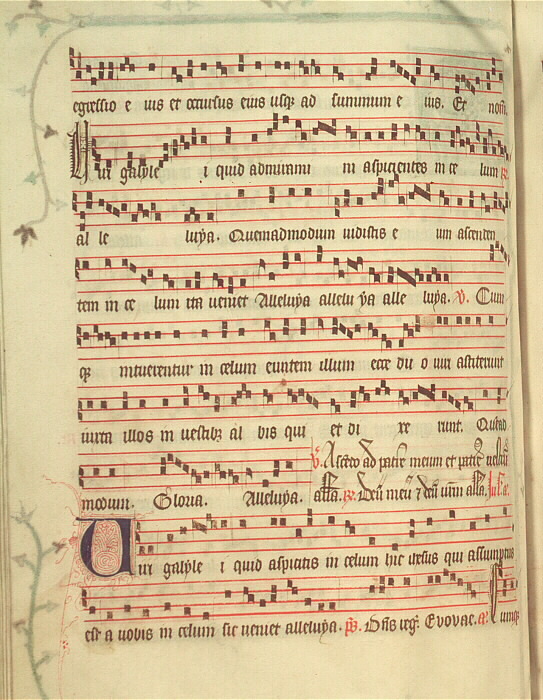 egressio e ius et occursus eius usqꝫ ad summum e ius. Et nosti.
Viri galyle i quid admirami ni aspicientes in ce lum ꝶ
al le luya. Quemadmodum uidistis e um ascenden
tem in ce lum ita ueniet Alleluya allelu ya alle luya. ꝟ. Cum
qꝫ intuerentur in celum euntem illum ecce du o uiri astiterunt
iuxta illos in uestibꝫ al bis qui et di xe runt. Quead
modum. Gloria. Alleluya.
ꝟ. Ascēdo ad patrē meum et patrē uestrū
alla. ꝶ. Deū meū ⁊ deū urm̄ alla.
Viri galyle i quid aspicitis in celum hic ihesus qui assumptus
est a uobis in celum sic ueniet alleluya. p̄s. Dn̄s reḡ. Evovae. a. Cumqꝫ